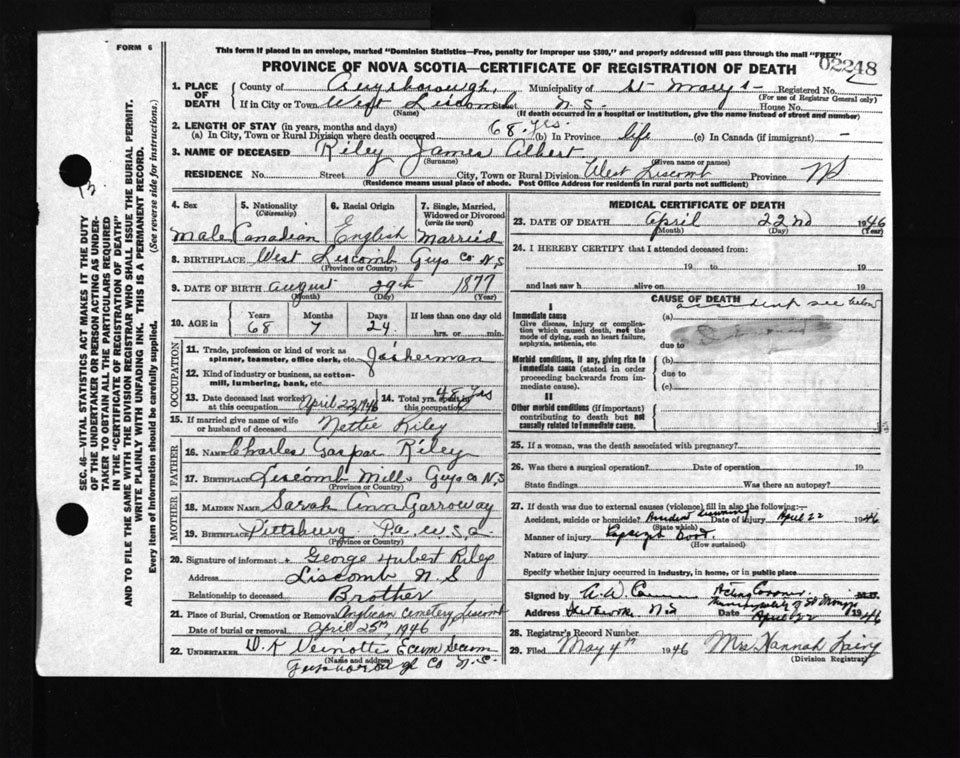 FORM 6
This form if placed in an envelope, marked "Dominion Statistics—Free, penalty for improper use $300," and properly addressed will pass through the mail "FREE"
PROVINCE OF NOVA SCOTIA—CERTIFICATE OF REGISTRATION OF DEATH
02248
1. PLACE OF DEATH County of Guysborough, Municipality of St Mary's Registered No.
(For use of Registrar General only)
If in City or Town West Liscomb N.S. House No.
(Name) (If death occurred in a hospital or institution, give the name instead of street and number)
2. LENGTH OF STAY (in years, months and days)
(a) In City, Town or Rural Division where death occurred 68 yrs. (b) In Province life (c) In Canada (if immigrant) —
3. NAME OF DECEASED Riley James Albert
(Surname) (Given name or names)
RESIDENCE No. Street City, Town or Rural Division West Liscomb Province NS
(Residence means usual place of abode. Post Office Address for residents in rural parts not sufficient)
4. Sex 5. Nationality (Citizenship) 6. Racial Origin 7. Single, Married, Widowed or Divorced (write the word)
Male Canadian English Married
8. BIRTHPLACE West Liscomb Guys Co N.S
(Province or Country)
9. DATE OF BIRTH August 29th 1877
(Month) (Day) (Year)
10. AGE in Years Months Days If less than one day old
68 7 24 hrs. or min.
OCCUPATION
11. Trade, profession or kind of work as spinner, teamster, office clerk, etc. Fisherman
12. Kind of industry or business, as cotton-mill, lumbering, bank, etc.
13. Date deceased last worked at this occupation April 22/1946 14. Total yrs. spent in this occupation 45 yrs
15. If married give name of wife or husband of deceased Nettie Riley
FATHER
16. NAME Charles Gaspar Riley
17. BIRTHPLACE Liscomb Mills Guys Co N,S
(Province or Country)
MOTHER
18. MAIDEN NAME Sarah Ann Garroway
19. BIRTHPLACE Pittsburg Pa. U.S.a
(Province or Country)
20. Signature of informant + George Hubert Riley
Address Liscomb N.S
Relationship to deceased Brother
21. Place of Burial, Cremation or Removal Anglican Cemetery, Liscomb
Date of burial or removal April 25th, 1946
22. UNDERTAKER D.K Veinotte Ecum Secum
(Name and address)
Guysborough Co N.S.
MEDICAL CERTIFICATE OF DEATH
23. DATE OF DEATH April 22nd 1946
(Month) (Day) (Year)
24. I HEREBY CERTIFY that I attended deceased from:
19 to 19
and last saw h alive on 19
CAUSE OF DEATH
I
Immediate cause (a) accident see below
Give disease, injury or complication which caused death, not the mode of dying, such as heart failure, asphyxia, asthenia, etc.
due to
Morbid conditions, if any, giving rise to immediate cause (stated in order proceeding backwards from immediate cause). (b)
due to
(c)
II
Other morbid conditions (if important) contributing to death but not causally related to immediate cause.
25. If a woman, was the death associated with pregnancy?
26. Was there a surgical operation? Date of operation 19
State findings Was there an autopsy?
27. If death was due to external causes (violence) fill in also the following:—
Accident, suicide or homicide? Accident Drowning Date of injury April 22 1946
(State which)
Manner of injury Capsized Boat.
(How sustained)
Nature of injury
Specify whether injury occurred in industry, in home, or in public place
Signed by Acting Coroner M.D.
Municipality of St Marys
Address Sherbrooke N.S Date April 22 1946
28. Registrar's Record Number
29. Filed May 4th 1946 Mrs Hannah
(Division Registrar)
SEC. 46—VITAL STATISTICS ACT MAKES IT THE DUTY OF THE UNDERTAKER OR PERSON ACTING AS UNDERTAKER TO OBTAIN ALL THE PARTICULARS REQUIRED IN THE "CERTIFICATE OF REGISTRATION OF DEATH" AND TO FILE THE SAME WITH THE DIVISION REGISTRAR WHO SHALL ISSUE THE BURIAL PERMIT.
WRITE PLAINLY WITH UNFADING INK. THIS IS A PERMANENT RECORD.
Every item of information should be carefully supplied. (See reverse side for instructions.)